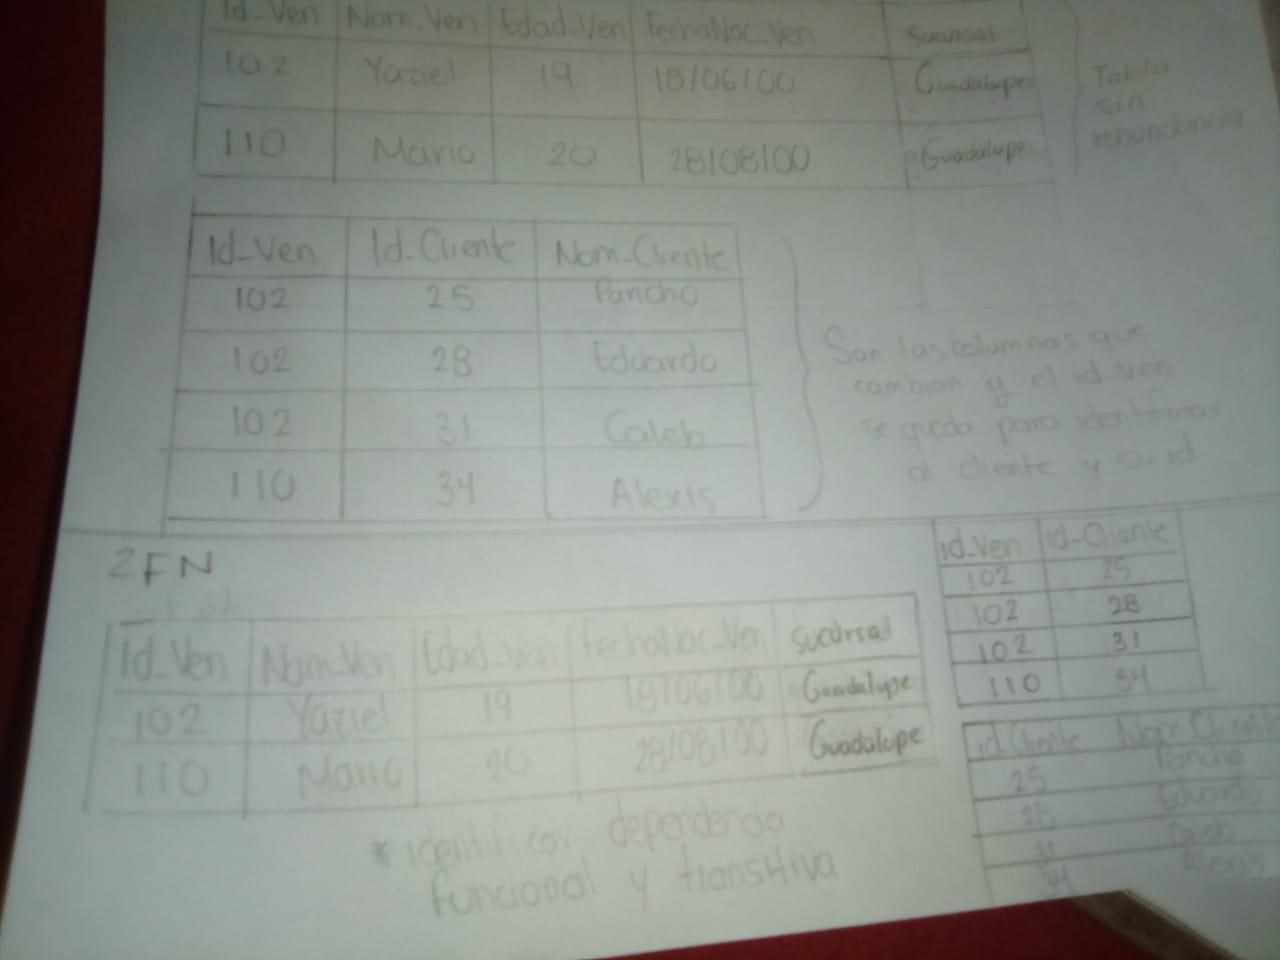 Id_Ven Nom_Ven Edad_Ven FechaNac_Ven Sucursal
102 Yaziel 19 18/06/00 Guadalupe
110 Mario 20 28/08/00 Guadalupe
Tabla
sin
rebundancia
Id_Ven Id_Cliente Nom_Cliente
102 25 Pancho
102 28 Eduardo
102 31 Caleb
110 34 Alexis
Son las columnas que
cambian y el id_ven
se queda para identificar
al cliente y su id
2FN
Id_Ven Nom_Ven Edad_Ven FechaNac_Ven Sucursal
102 Yaziel 19 18/06/00 Guadalupe
110 Mario 20 28/08/00 Guadalupe
* identificar dependencia
funcional y transitiva
id_Ven id_Cliente
102 25
102 28
102 31
110 34
id_Cliente Nom_Cliente
25 Pancho
28 Eduardo
31 Caleb
34 Alexis